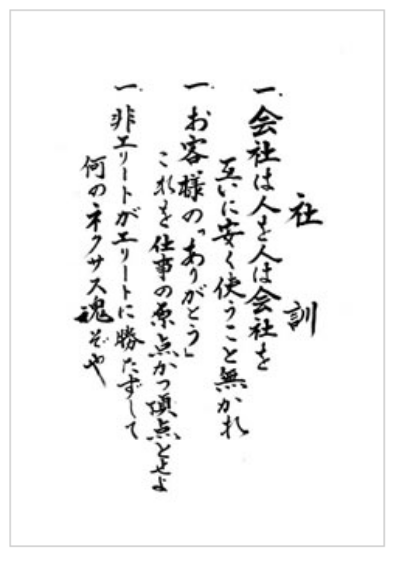 社訓
一、会社は人を人は会社を
互いに安く使うこと無かれ
一、お客様の「ありがとう」
これを仕事の原点かつ頂点とせよ
一、非エリートがエリートに勝たずして
何のネクサス魂ぞや